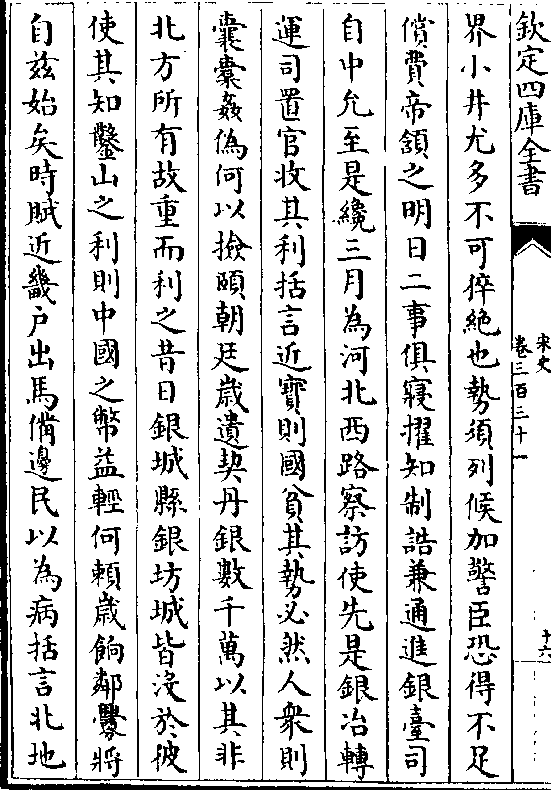 欽定四庫全書
宋史
卷三百三十一
十六
界小井尤多不可猝絶也勢須列候加警臣恐得不足
償費帝頷之明日二事俱寢擢知制誥兼通進銀臺司
自中允至是纔三月為河北西路察訪使先是銀冶轉
運司置官收其利括言近寶則國貧其勢必然人衆則
囊橐姦偽何以撿頤朝廷歲遺契丹銀數千萬以其非
北方所有故重而利之昔日銀城縣銀坊城皆沒於彼
使其知鑿山之利則中國之幣益輕何賴歲餉鄰釁將
自兹始矣時賦近畿户出馬備邊民以為病括言北地